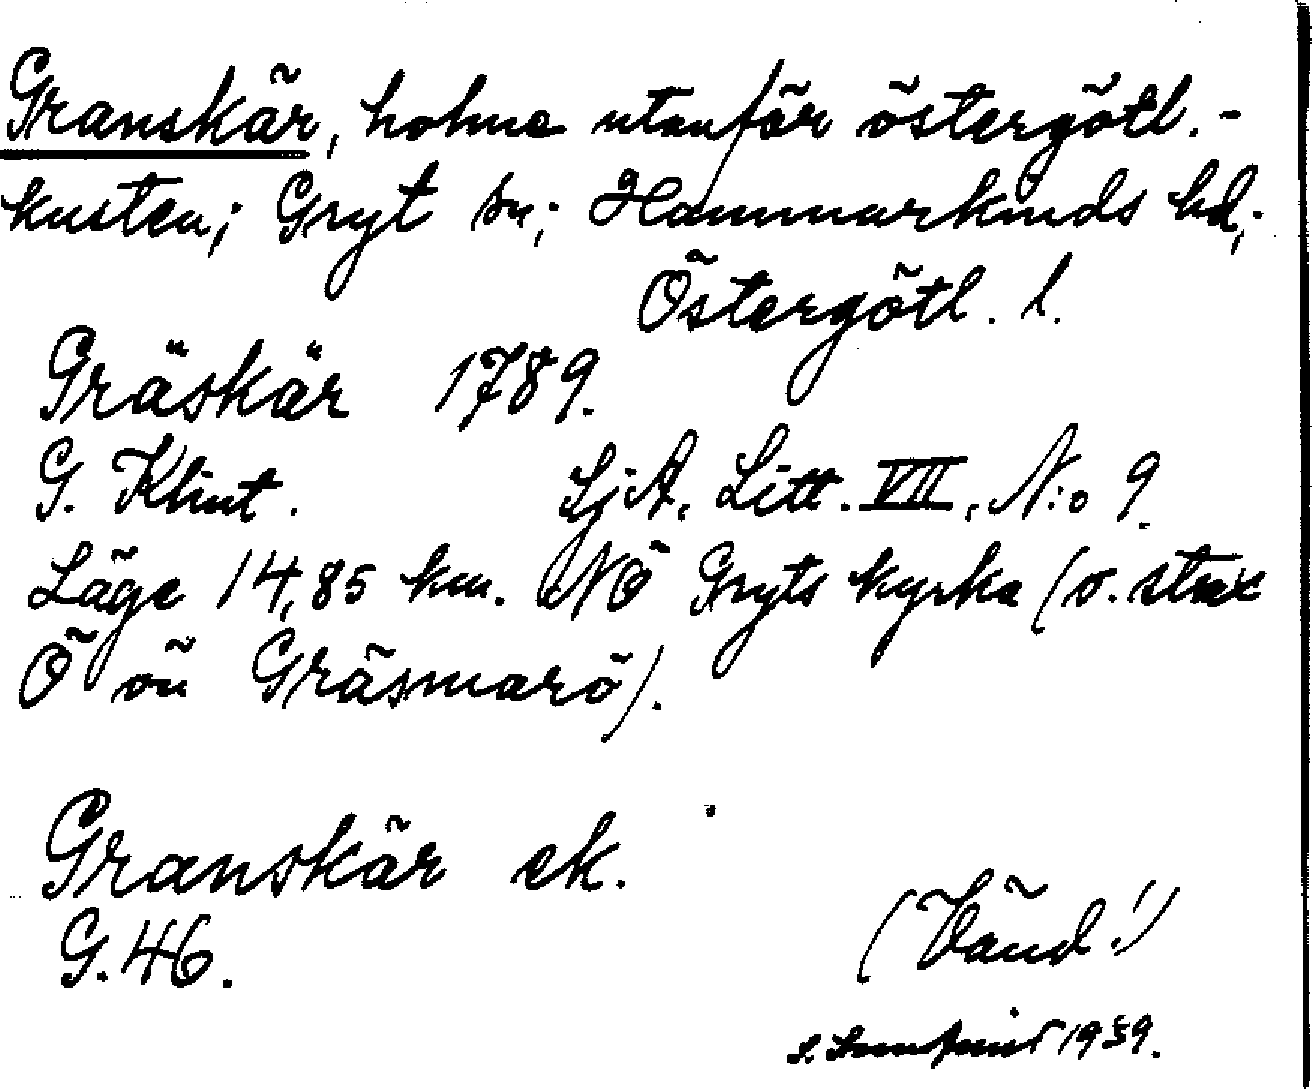 Granskär, holme utanför östergötl.-
kusten; Gryt sn; Hammarkinds hd;
Östergötl. l.
Gräskär 1789.
G. Klint. SjA, Litt. VII, N:o 9.
Läge 14,85 km. NÖ Gryts kyrka (o. strax
Ö om Gräsmarö).
Granskär ek.
G. 46.
(Vänd!)
1939.